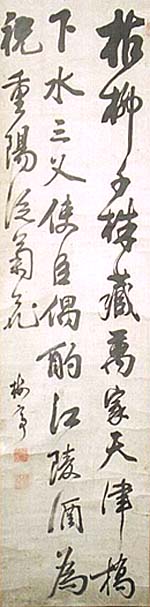 枯柳千株藏萬家天津橋
下水三叉使臣偶酌江陵酒為
祝重陽泛菊花
梅亭